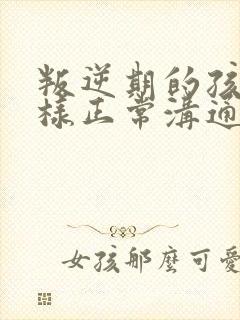 叛逆期的孩
樣正常溝通
女孩那麼可愛